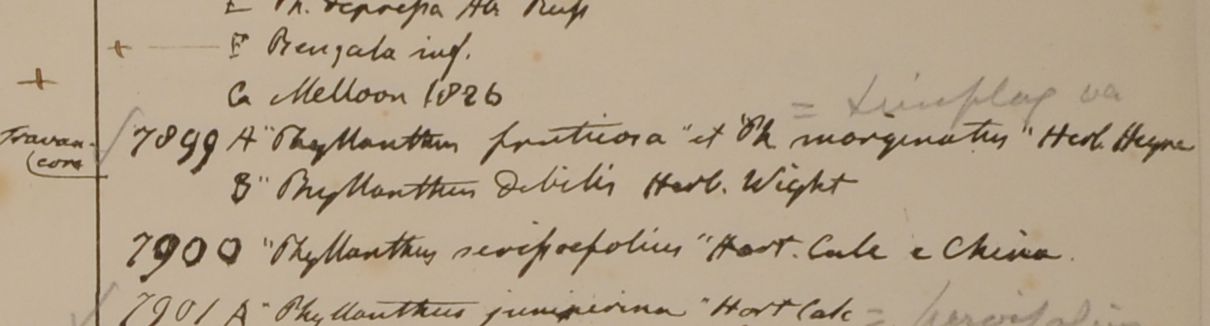 E Ph. depressa Hb. Russ
+ F Bengala inf.
+ G Melloon 1826
= simplex va
Travan- 7899 A "Phyllanthus fruticosa" et "Ph. marginatus" Herb. Heyne
core B "Phyllanthus debilis Herb. Wight
7900 "Phyllanthus" Hort. Calc e China.
7901 A "Phyllanthus juniperina" Hort Calc =